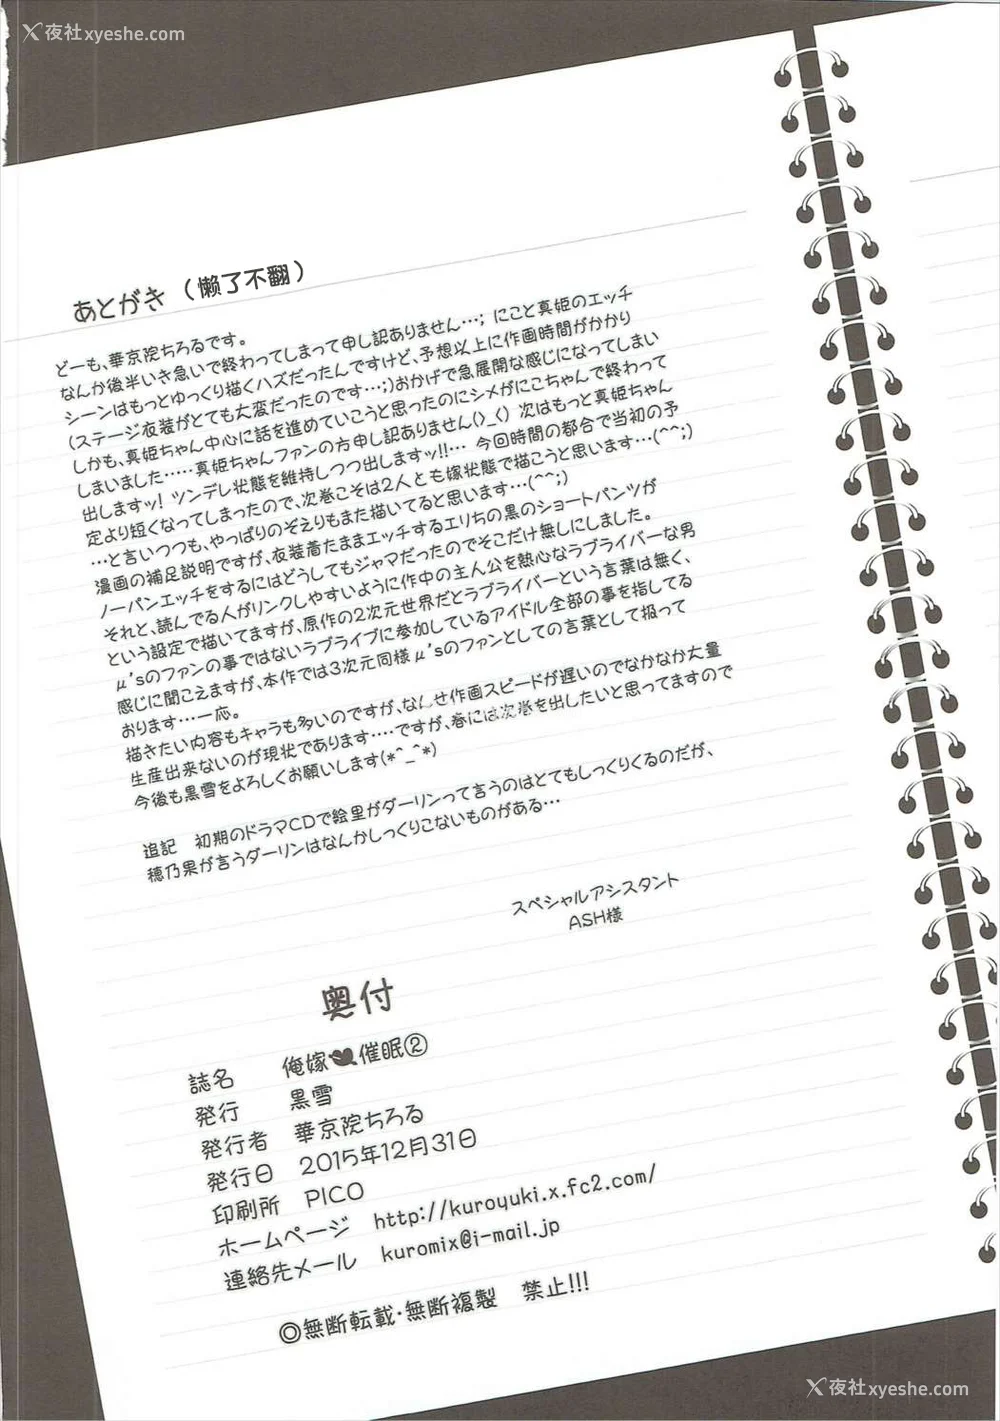 夜社xyeshe.com
あとがき（懒了不翻）
どーも、華京院ちろるです。
なんか後半いき急いで終わってしまって申し訳ありません…; にこと真姫のエッチ
シーンはもっとゆっくり描くハズだったんですけど、予想以上に作画時間がかかり
(ステージ衣装がとても大変だったのです…;)おかげで急展開な感じになってしまい
しかも、真姫ちゃん中心に話を進めていこうと思ったのにシメがにこちゃんで終わって
しまいました……真姫ちゃんファンの方申し訳ありません(>_<) 次はもっと真姫ちゃん
出しますッ! ツンデレ状態を維持しつつ出しますッ!!… 今回時間の都合で当初の予
定より短くなってしまったので、次巻こそは2人とも嫁状態で描こうと思います…(^^;)
…と言いつつも、やっぱりのぞえりもまた描いてると思います…(^^;)
漫画の補足説明ですが、衣装着たままエッチするエリちの黒のショートパンツが
ノーパンエッチをするにはどうしてもジャマだったのでそこだけ無しにしました。
それと、読んでる人がリンクしやすいように作中の主人公を熱心なラブライバーな男
という設定で描いてますが、原作の2次元世界だとラブライバーという言葉は無く、
μ'sのファンの事ではないラブライブに参加しているアイドル全部の事を指してる
感じに聞こえますが、本作では3次元同様μ'sのファンとしての言葉として扱って
おります…一応。
描きたい内容もキャラも多いのですが、なんせ作画スピードが遅いのでなかなか大量
生産出来ないのが現状であります‥‥ですが、春には次巻を出したいと思ってますので
今後も黒雪をよろしくお願いします(*^_^*)
追記　初期のドラマCDで絵里がダーリンって言うのはとてもしっくりくるのだが、
穂乃果が言うダーリンはなんかしっくりこないものがある…
スペシャルアシスタント
ASH様
奥付
誌名　俺嫁催眠②
発行　黒雪
発行者　華京院ちろる
発行日　2015年12月31日
印刷所　PICO
ホームページ　http://kuroyuki.x.fc2.com/
連絡先メール　kuromix@i-mail.jp
◎無断転載・無断複製　禁止!!!
夜社xyeshe.com